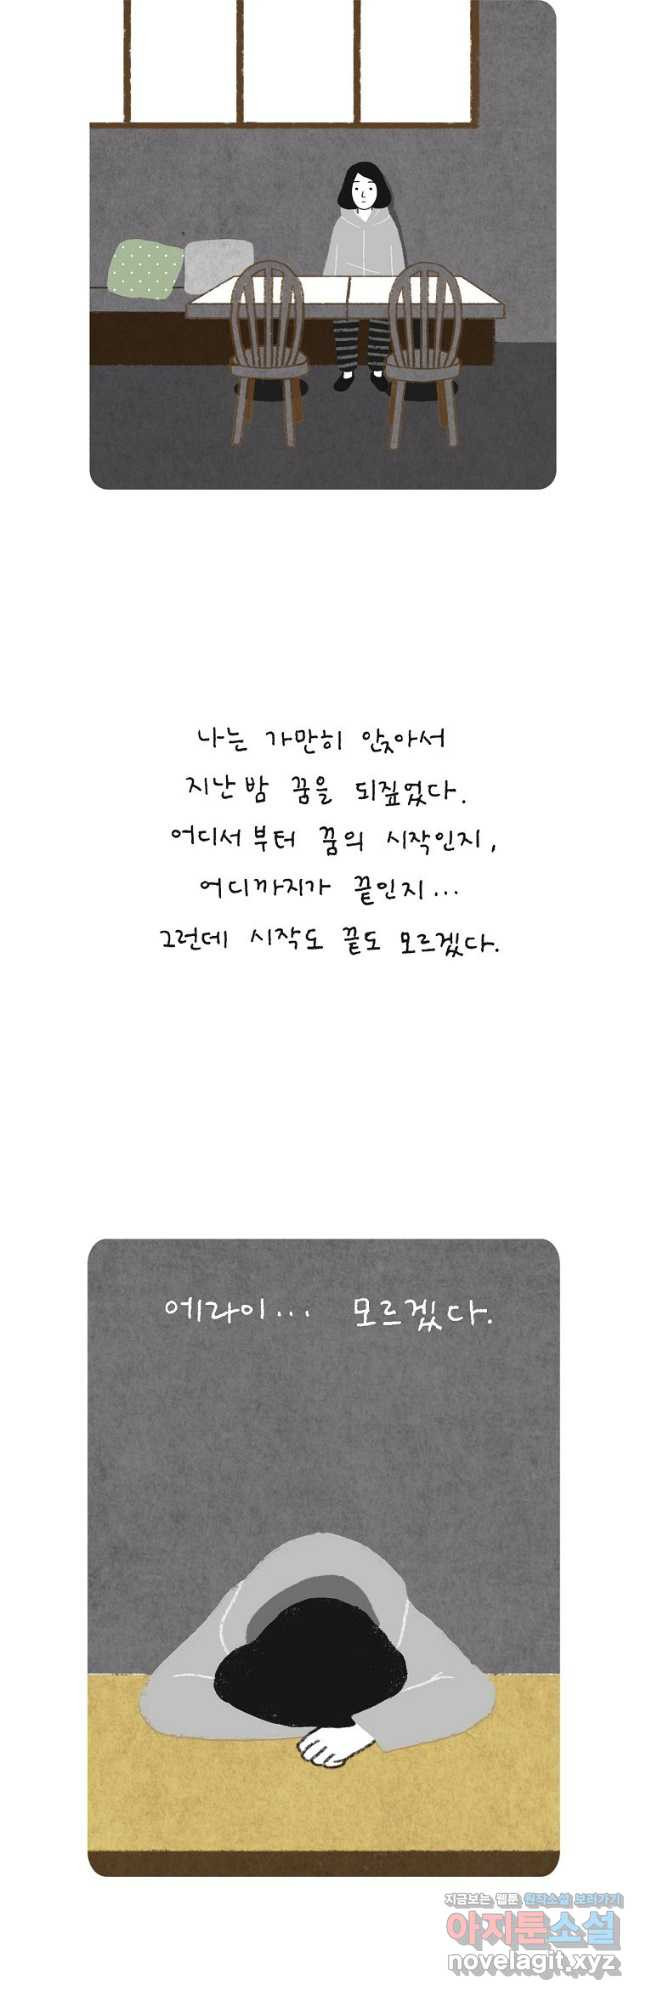 나는 가만히 앉아서
지난밤 꿈을 되짚었다.
어디서부터 꿈의 시작인지,
어디까지가 끝인지...
그런데 시작도 끝도 모르겠다.
에라이... 모르겠다.
지금보는 웹툰 원작소설 보러가기
아지툰소설
novelagit.xyz